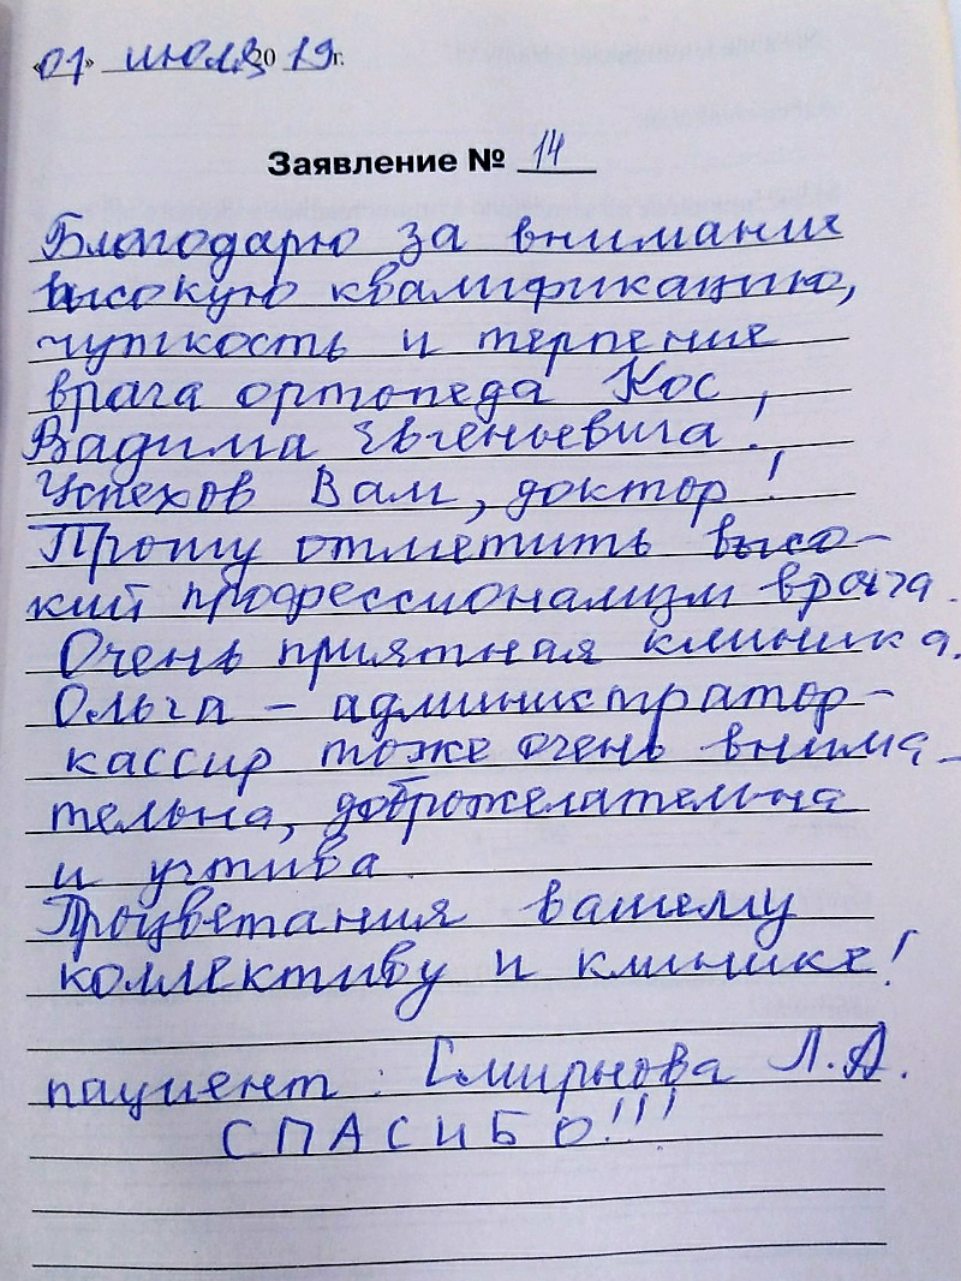 «01» июля 2019г.
Заявление № 14
Благодарю за внимание
высокую квалификацию,
чуткость и терпение
врача ортопеда Кос,
Вадима Евгеньевича!
Успехов Вам, доктор!
Прошу отметить высо-
кий профессионализм врача.
Очень приятная клиника.
Ольга - администратор-
кассир тоже очень внима-
тельна, доброжелательна
и учтива.
Процветания вашему
коллективу и клинике!
пациент: Смирнова Л.А.
СПАСИБО!!!